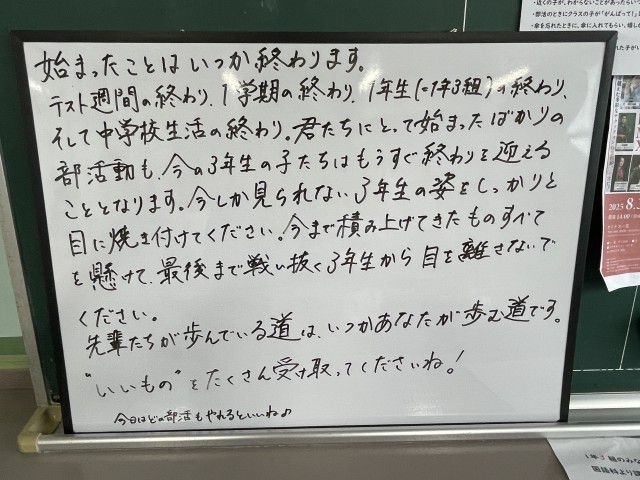 始まったことはいつか終わります。
テスト週間の終わり、1学期の終わり、1年生(=1年3組)の終わり、
そして中学校生活の終わり。君たちにとって始まったばかりの
部活動も、今の3年生の子たちはもうすぐ終わりを迎える
こととなります。今しか見られない3年生の姿をしっかりと
目に焼き付けてください。今まで積み上げてきたものすべて
を懸けて、最後まで戦い抜く3年生から目を離さないで
ください。
先輩たちが歩んでいる道は、いつかあなたが歩む道です。
"いいもの"をたくさん受け取ってくださいね！
今日はどの部活もやれるといいね♪
・近くの子が、わからないことがあったらいつ
・部活のときにクラスの子が「がんばって！」
・傘を忘れたときに、傘に入れてもらい、嬉し
2025 8.